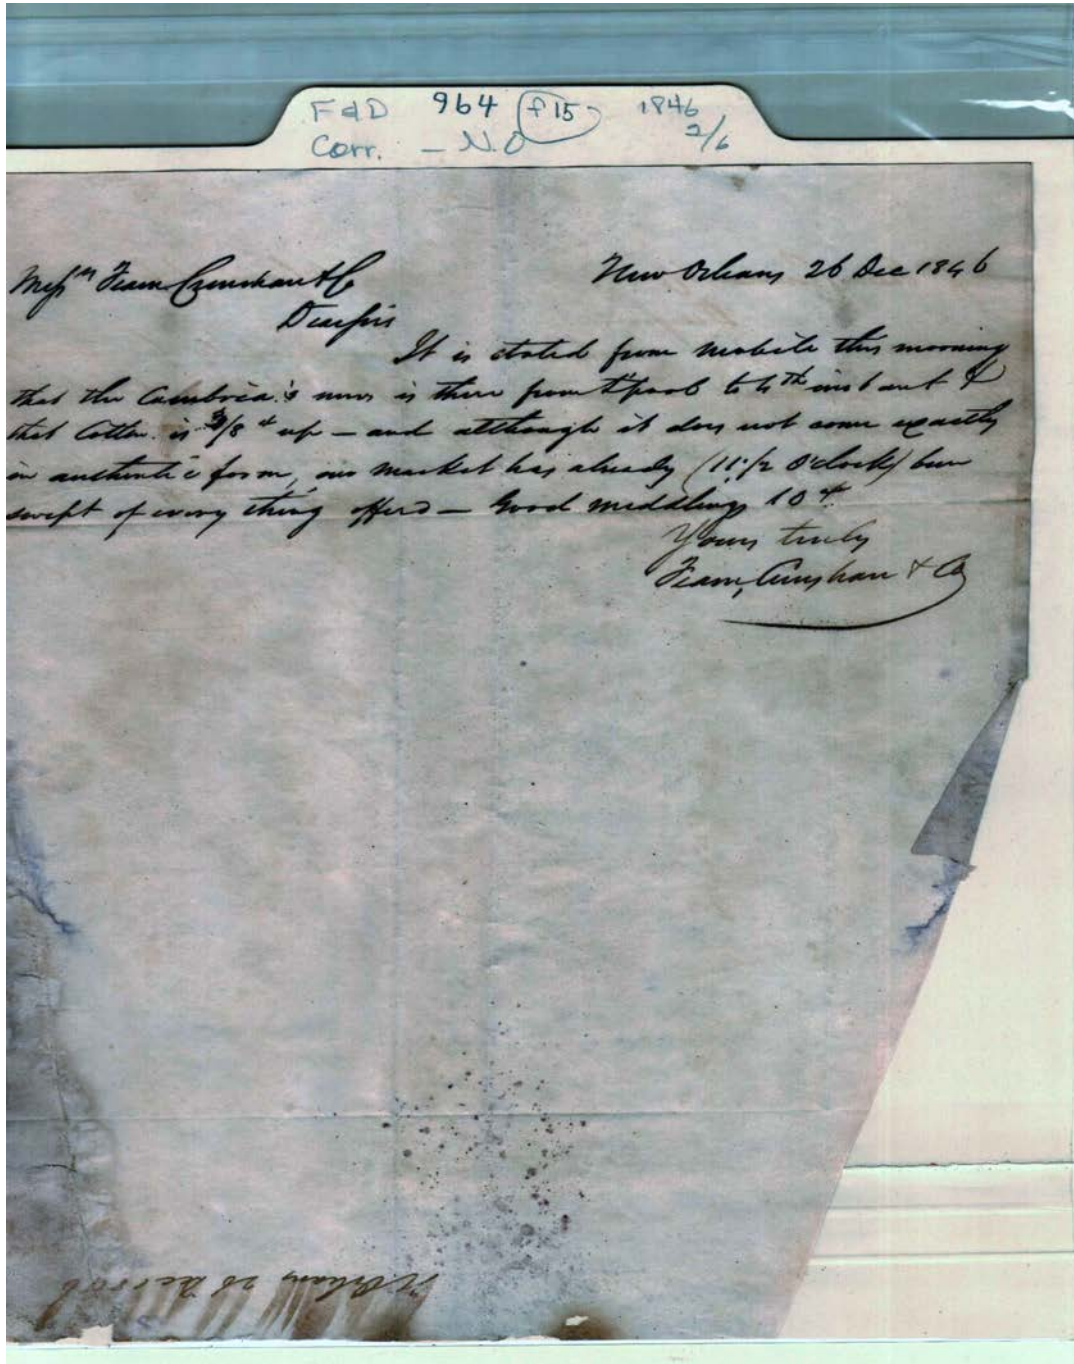 F&D 964 f 15 1846
Corr. - N.O 2/6
New Orleans 26 Dec 1846
Messrs Fearn Crenshaw & Co
Dear Sirs
It is stated from Mobile this morning
that the Cambria's news is there from L'pool to 4th instant &
that Cotton is 3/8d up — and although it does not come exactly
in authentic form, our market has already (11 1/2 O'clock) been
swept of every thing offered — Good middling 10
Yours truly
Fearn, Crenshaw & Co
N Orleans 26 Dec 1846